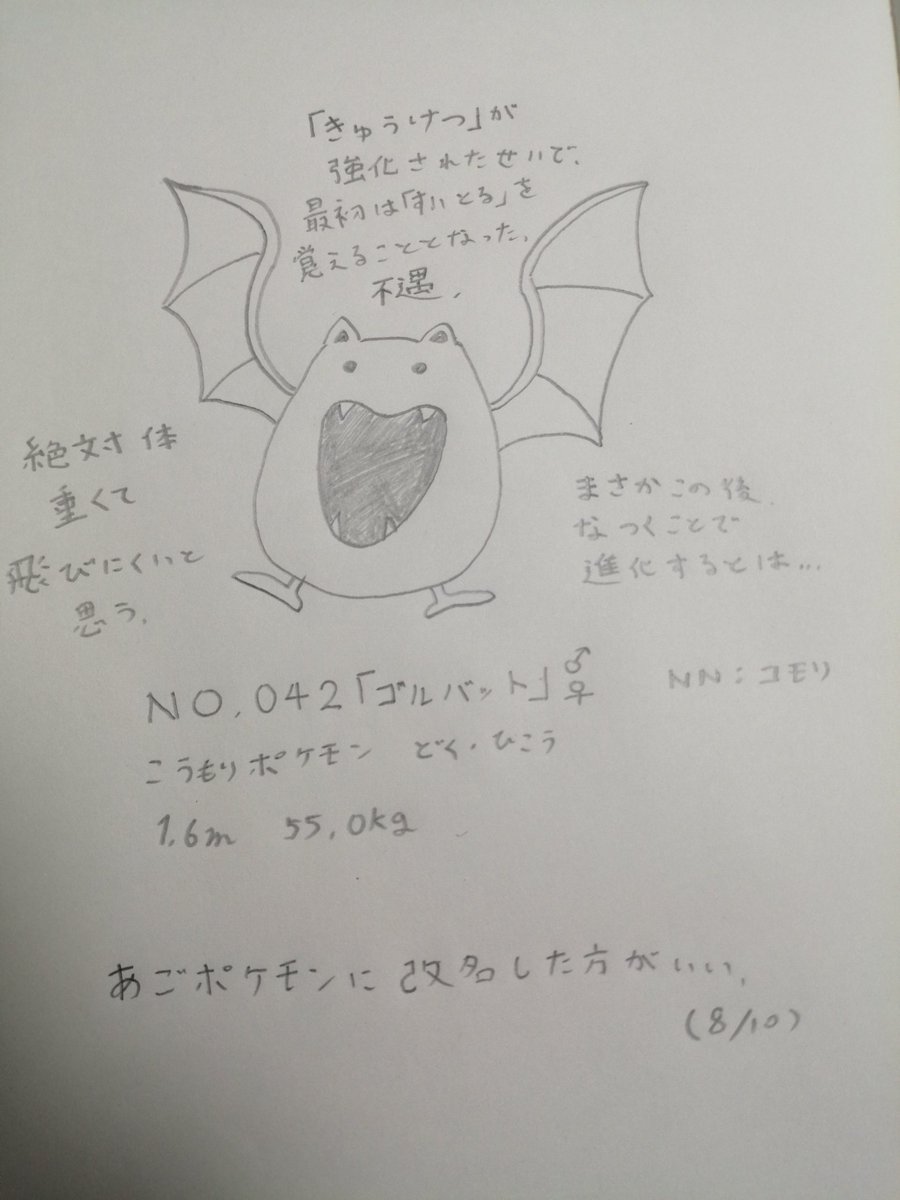 「きゅうけつ」が
強化されたせいで、
最初は「すいとる」を
覚えることとなった。
不遇。
絶対体
重くて
飛びにくいと
思う。
まさかこの後
なつくことで
進化するとは…
NO.042「ゴルバット」♂♀
NN:コモリ
こうもりポケモン どく・ひこう
1.6m 55.0kg
あごポケモンに改名した方がいい。
(8/10)